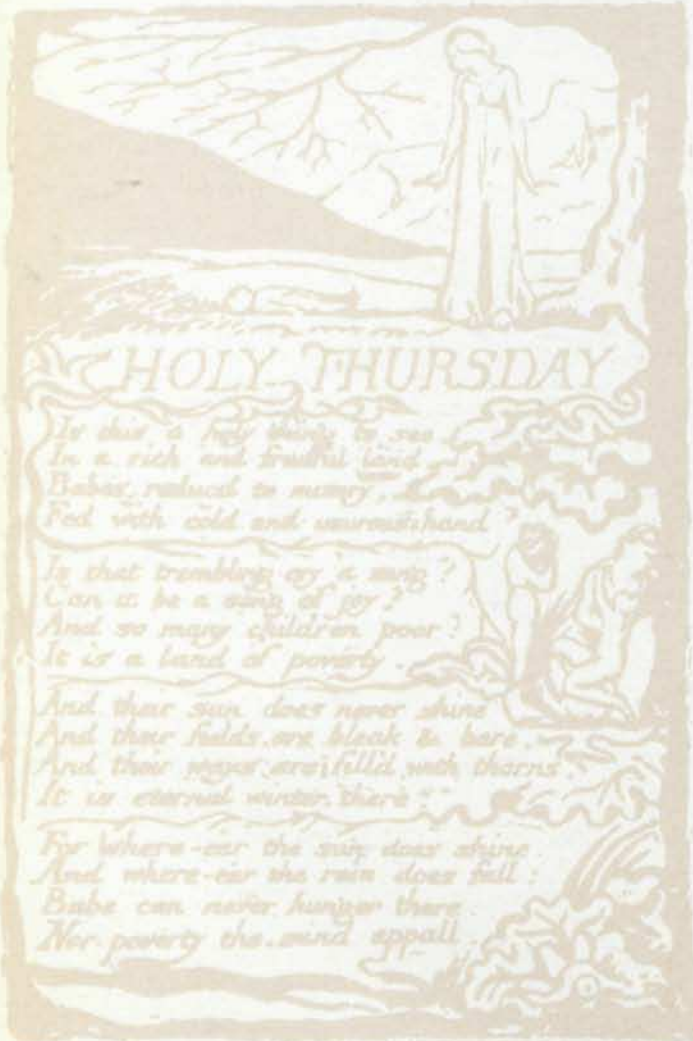 HOLY THURSDAY
Is this a holy thing to see
In a rich and fruitful land
Babes reduced to misery.
Fed with cold and usurous hand?
Is that trembling cry a song?
Can it be a song of joy?
And so many children poor?
It is a land of poverty.
And their sun does never shine
And their fields are bleak & bare.
And their ways are fill'd with thorns
It is eternal winter there.
For where-eer the sun does shine
And where-eer the rain does fall:
Babe can never hunger there
Nor poverty the mind appall.